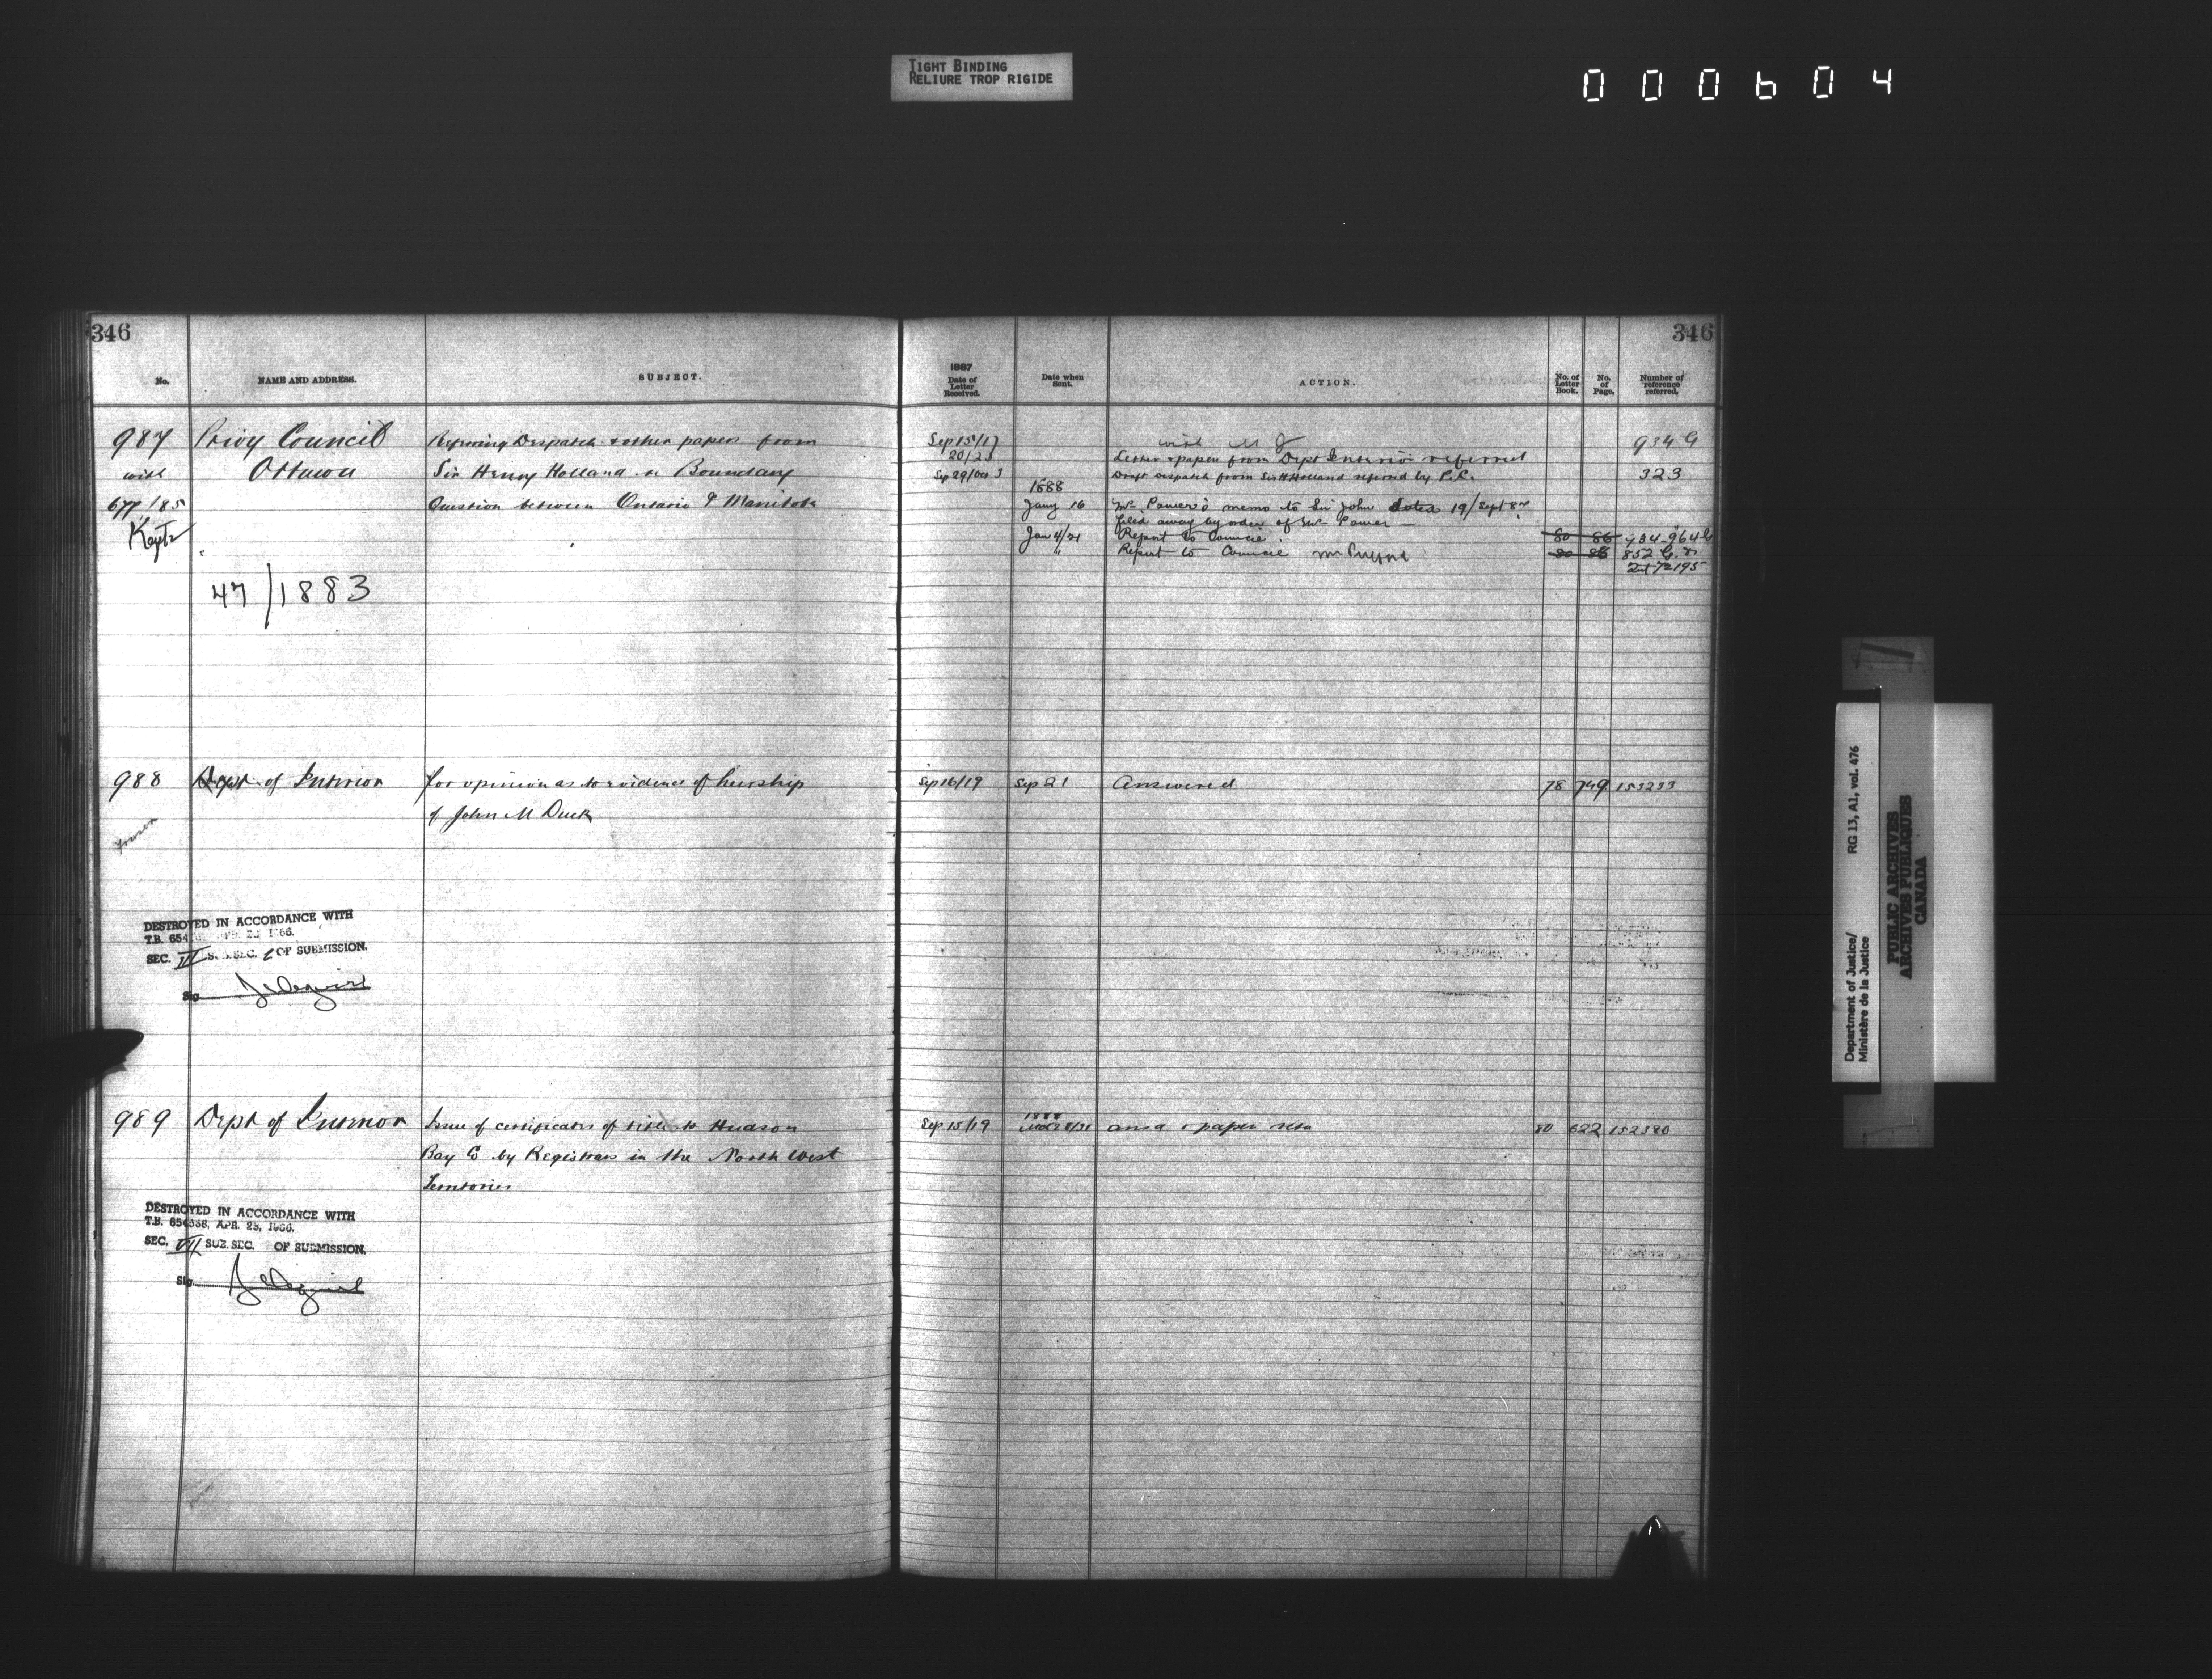 TIGHT BINDING
RELIURE TROP RIGIDE
000604
346
346
No.
NAME AND ADDRESS.
SUBJECT.
1887
Date of Letter Received.
Date when Sent.
ACTION.
No. of Letter Book.
No. of Page.
Number of reference referred.
987 Privy Council Referring Despatch & other papers from Sep 15/17 with M J 934 G
20/23 Letter & papers from Dept Interior referred
with Ottawa Sir Henry Holland re Boundary Sep 29/Oct 3 Draft despatch from Sir H Holland referred by P.C. 323
1888
677/85 Question between Ontario & Manitoba Jany 16 Mr Power's memo to Sir John dated 19/Sept 87
filed away by order of Mr Power
Jan 4/21 Report to Council 80 86 434 964 G
" Report to Council Mr 80 86 852 G
47/1883
988 Dept of Interior for opinion as to evidence of heirship Sep 16/19 Sep 21 Answered 78 749 153233
of John M Duck
DESTROYED IN ACCORDANCE WITH
T.B. 654 1966.
SEC. VI SUB.SEC. OF SUBMISSION.
Sig.
989 Dept of Interior Issue of certificates of title to Hudson Sep 15/19 1888 ansd & papers retd 80 622 152380
Bay Co by Registrars in the North West
Territories
DESTROYED IN ACCORDANCE WITH
T.B. 654338, APR. 25, 1966.
SEC. VII SUB.SEC. OF SUBMISSION.
Sig.
Department of Justice/ RG 13, A1, vol. 476
Ministère de la Justice
PUBLIC ARCHIVES
ARCHIVES PUBLIQUES
CANADA